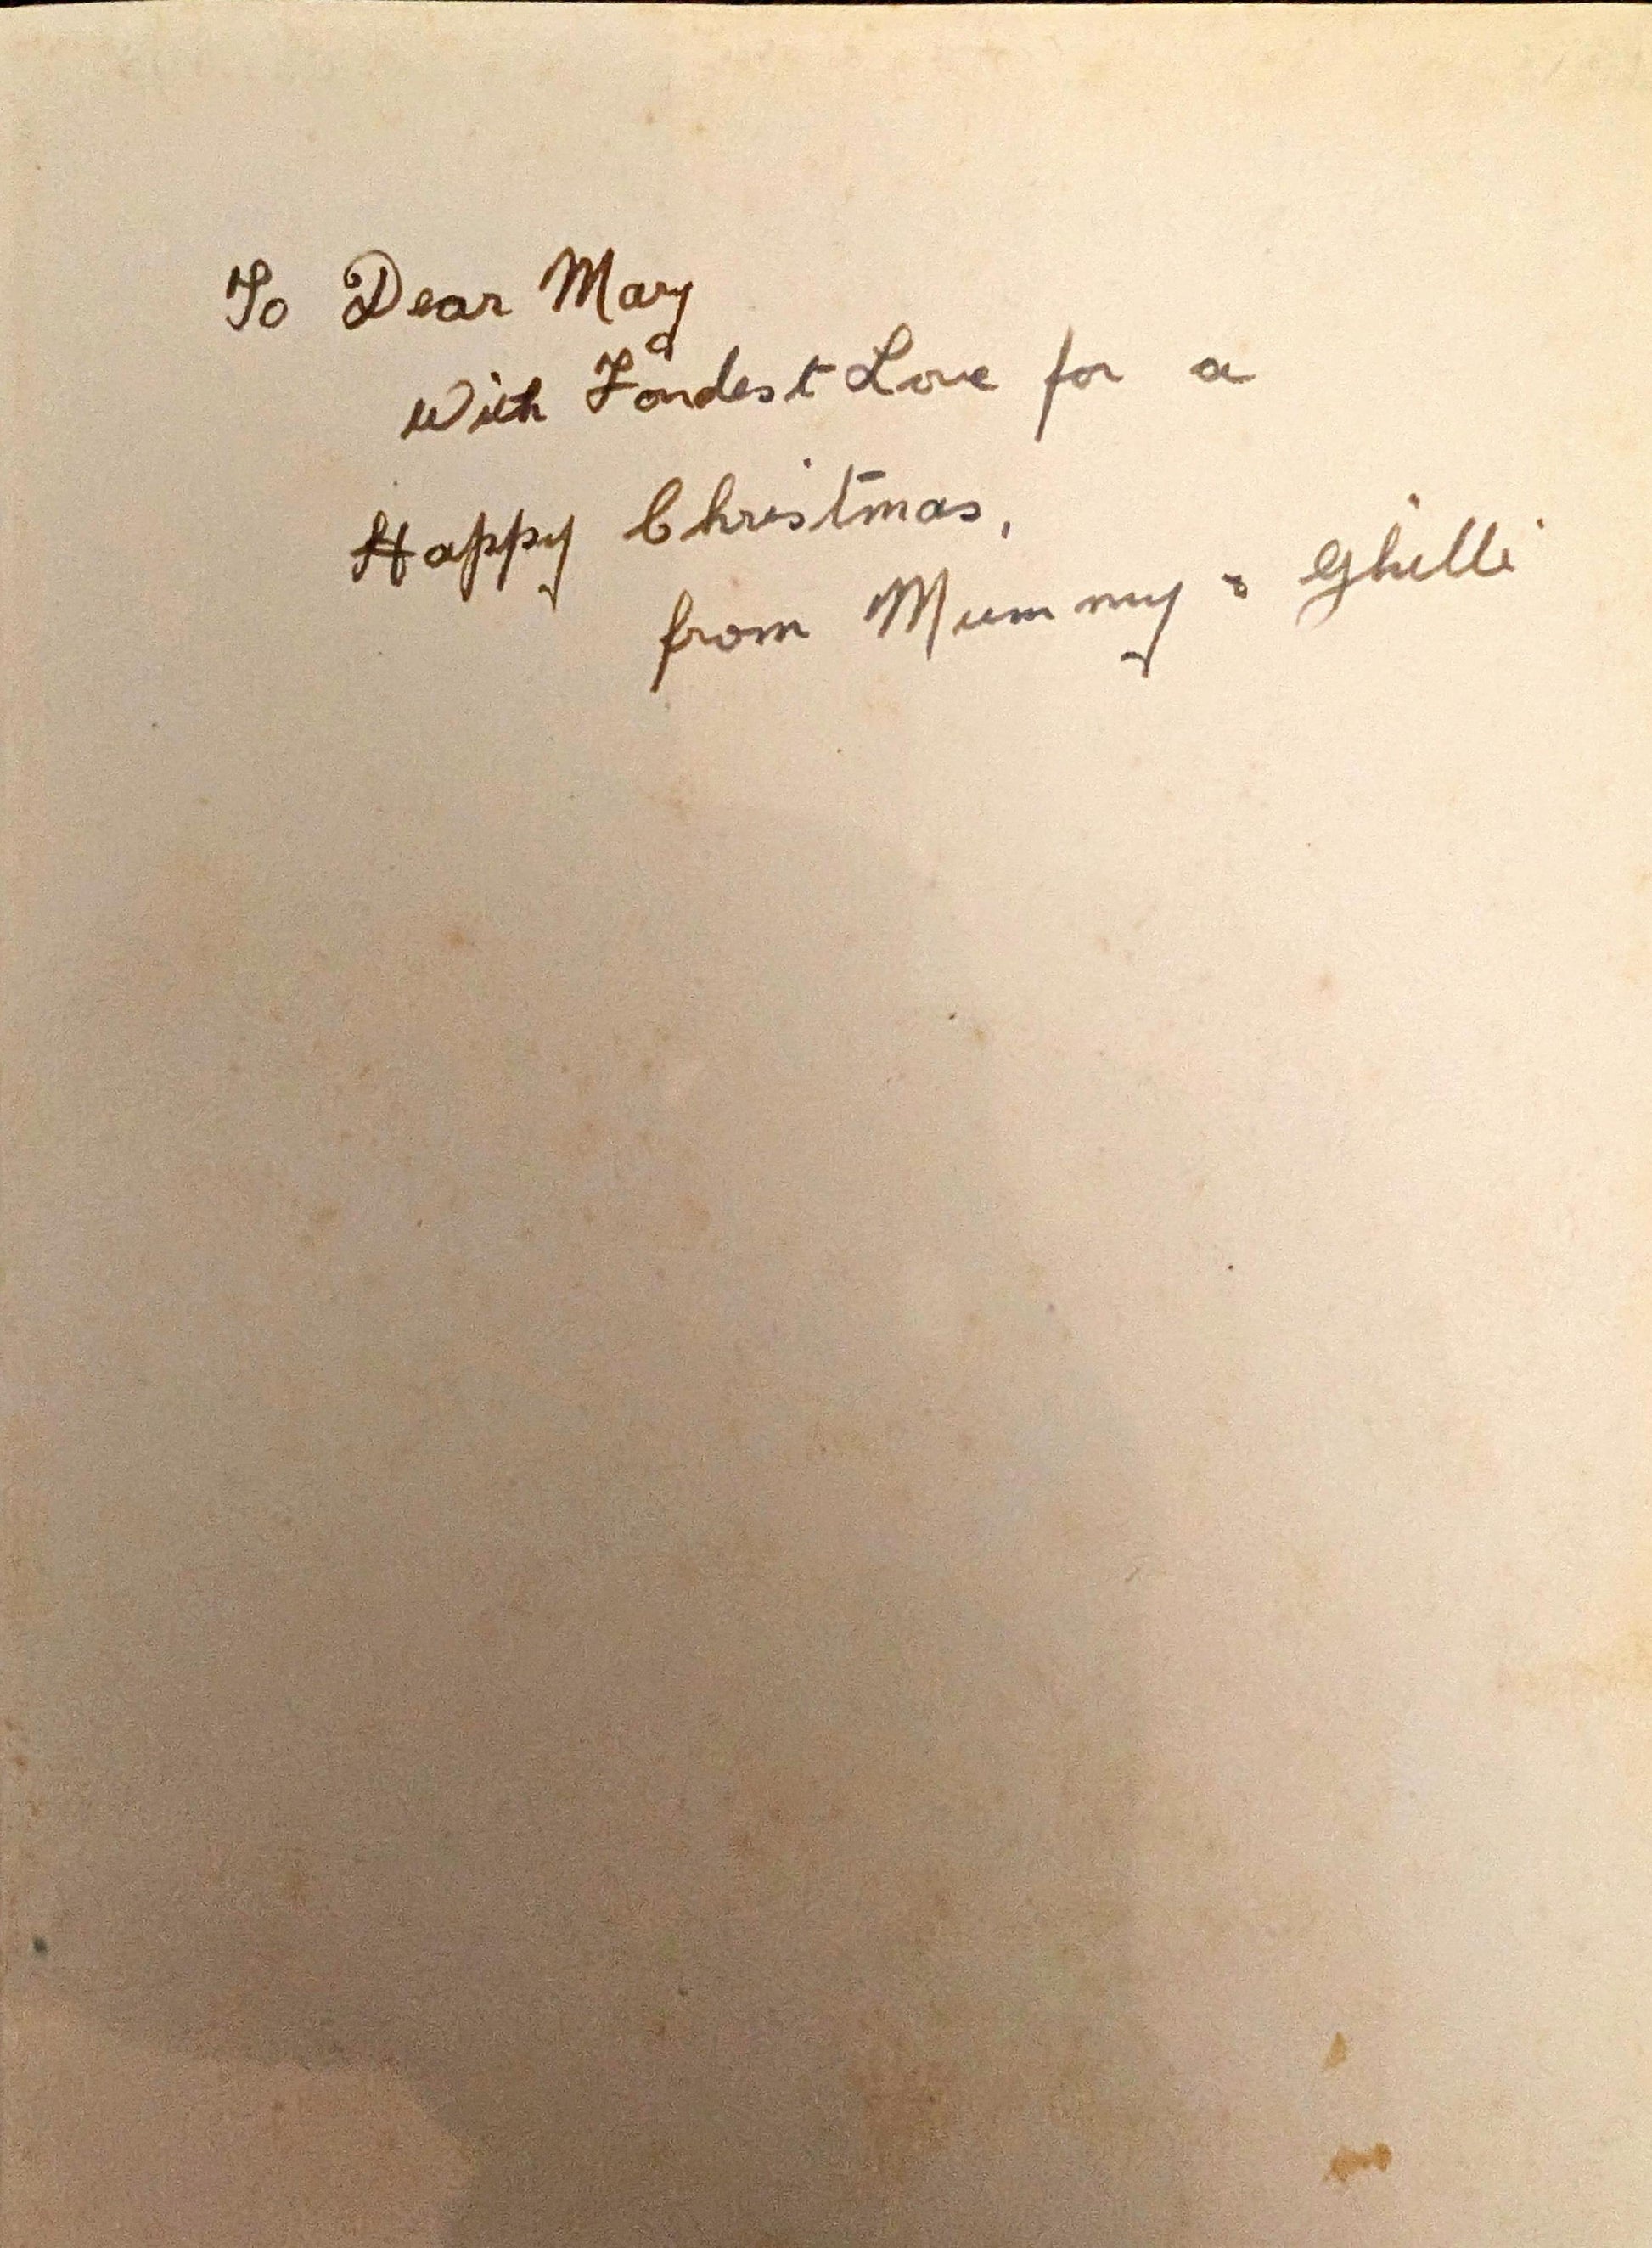 To Dear Mary
With Fondest Love for a
Happy Christmas,
from Mummy & Ghilli